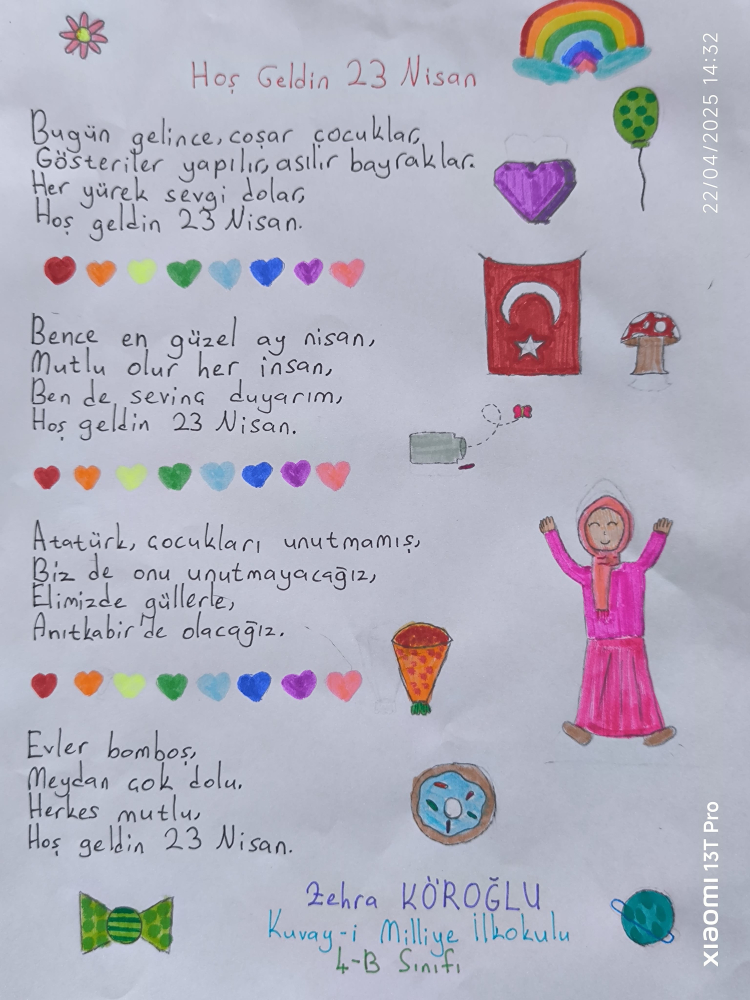 Hoş Geldin 23 Nisan
Bugün gelince, coşar çocuklar,
Gösteriler yapılır, asılır bayraklar.
Her yürek sevgi dolar,
Hoş geldin 23 Nisan.
Bence en güzel ay nisan,
Mutlu olur her insan,
Ben de sevinç duyarım,
Hoş geldin 23 Nisan.
Atatürk, çocukları unutmamış,
Biz de onu unutmayacağız,
Elimizde güllerle,
Anıtkabir'de olacağız.
Evler bomboş,
Meydan çok dolu.
Herkes mutlu,
Hoş geldin 23 Nisan.
Zehra KÖROĞLU
Kuvay-i Milliye İlkokulu
4-B Sınıfı
22/04/2025 14:32
XIAOMI 13T Pro